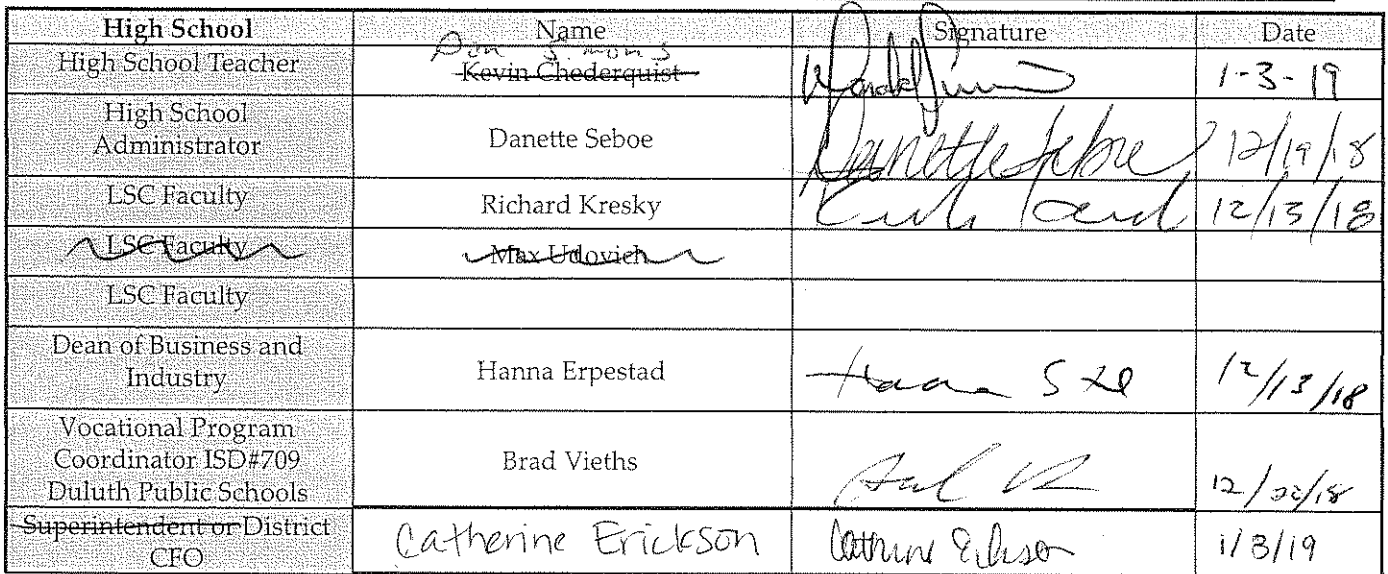 High School Name Signature Date
Don Simons
High School Teacher Kevin Chederquist 1-3-19
High School
Administrator Danette Seboe Danette Seboe 12/19/18
LSC Faculty Richard Kresky 12/13/18
LSC Faculty Max Udovich
LSC Faculty
Dean of Business and
Industry Hanna Erpestad 12/13/18
Vocational Program
Coordinator ISD#709 Brad Vieths
Duluth Public Schools
Superintendent or District
CFO Catherine Erickson Catherine Erickson 1/3/19